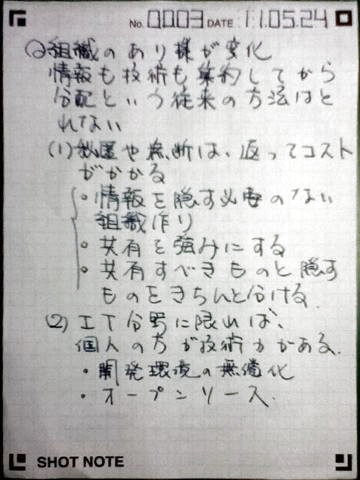 No. 0003 DATE 11.05.24
②組織のあり様が変化
情報も技術も集約してから
分配という従来の方法はと
れない
(1) 放置や無断は、返ってコスト
がかかる
・情報を隠す必要のない
組織作り
・共有を強みにする
・共有すべきものと隠す
ものをきちんと分ける.
(2) IT分野に限れば、
個人の方が技術力がある.
・開発環境の無償化
・オープンソース.
SHOT NOTE